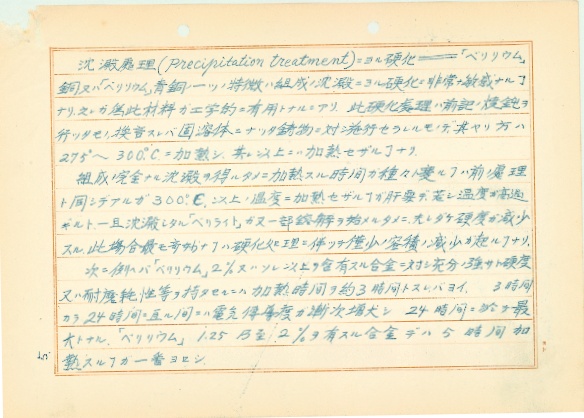 沈澱處理(Precipitation treatment)ニヨル硬化──「ベリリウム」
銅又ハ「ベリリウム」青銅ノ一ツノ特徴ハ組成ノ沈澱ニヨル硬化ニ非常ニ敏感ナルヿ
ナリ。之レガ為此材料ガ工学的ニ有用トナルニアリ 此硬化處理ハ前記ノ焼鈍ヲ
行ツタモノ、換言スレバ固溶体ニナツタ鋳物ニ対シ施行セラレルモノデ其ヤリ方ハ
275°〜300°Cニ加熱シ、其レ以上ニハ加熱セザルヿナリ。
組成ノ完全ナル沈澱ヲ得ルタメニ加熱スル時間ガ種々ト異ルヿハ前ノ處理
ト同ジデアルガ300°C.以上ノ温度ニ加熱セザルヿガ肝要デ若シ温度ガ高過
ギルト、一旦沈澱シタル「ベリライト」ガ又一部鎔解ヲ始メルタメニ、カヘツテ硬度ガ減少
スル。此場合最モ奇妙ナヿハ硬化処理ニ伴ツテ僅少ノ容積ノ減少ガ起ルヿナリ。
次ニ例ヘバ「ベリリウム」2%又ハソレ以上ヲ含有スル合金ニ対シ充分ノ強サト硬度
又ハ耐磨耗性等ヲ持タセルニハ加熱時間ヲ約3時間トスレバヨイ. 3時間
カラ24時間ニ亘ル間ニハ電気傳導度ガ漸次増大シ 24時間ニ於テ最
大トナル.「ベリリウム」1.25乃至2%ヲ有スル合金デハ5時間加
熱スルヿガ一番ヨロシ.